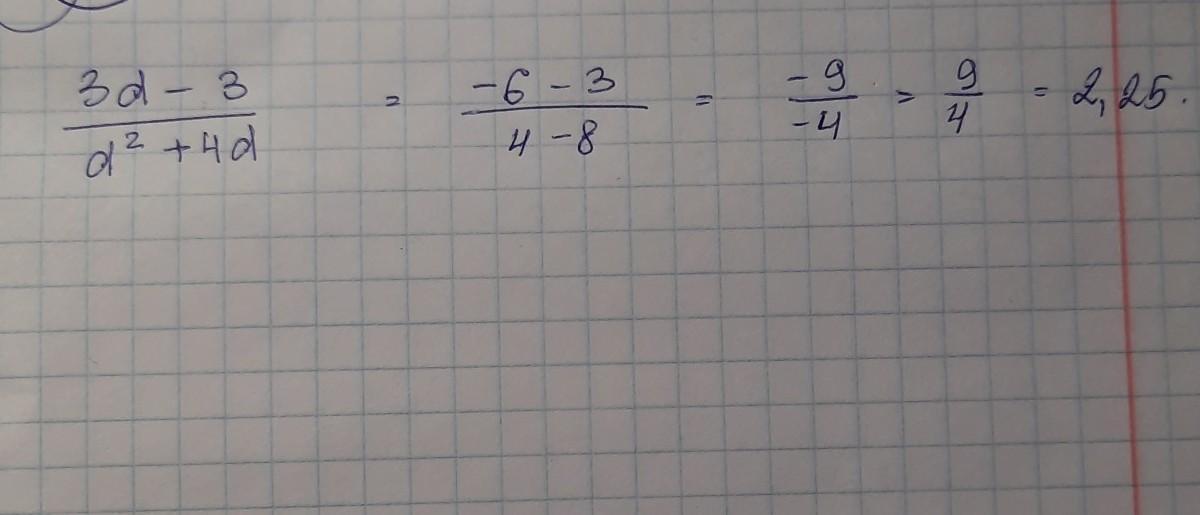 3d - 3 / d² + 4d = -6 - 3 / 4 - 8 = -9 / -4 = 9 / 4 = 2,25.